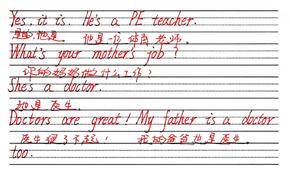 Yes, it is. He's a PE teacher.
是的,他是。 他是一位体育老师。
What's your mother's job?
你的妈妈做什么工作?
She's a doctor.
她是医生。
Doctors are great! My father is a doctor
医生很了不起! 我的爸爸也是医生。
too.